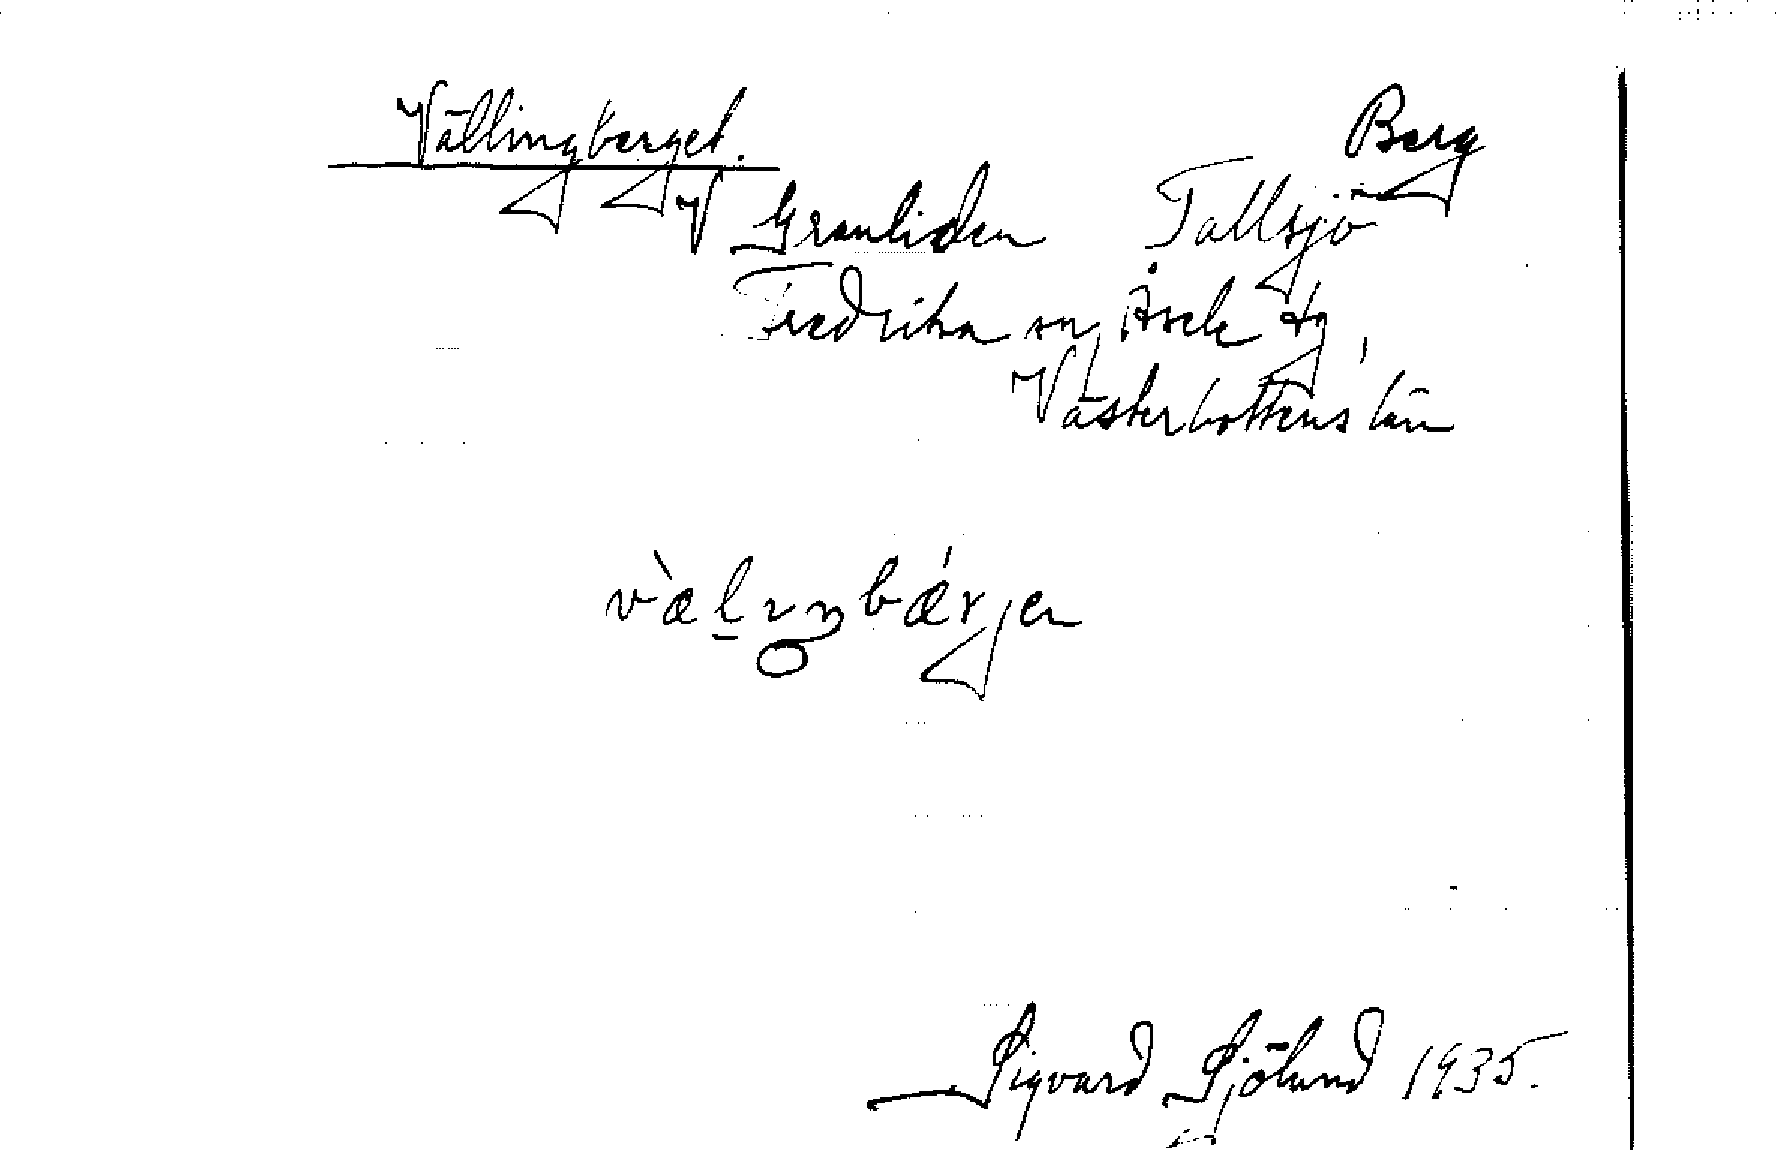 Vällingberget. Berg
V Granliden Tallsjö
Fredrika sn, Åsele tg,
Västerbottens län
v̀æl̠ıŋbǽrjen
Sigvard Sjölund 1935.